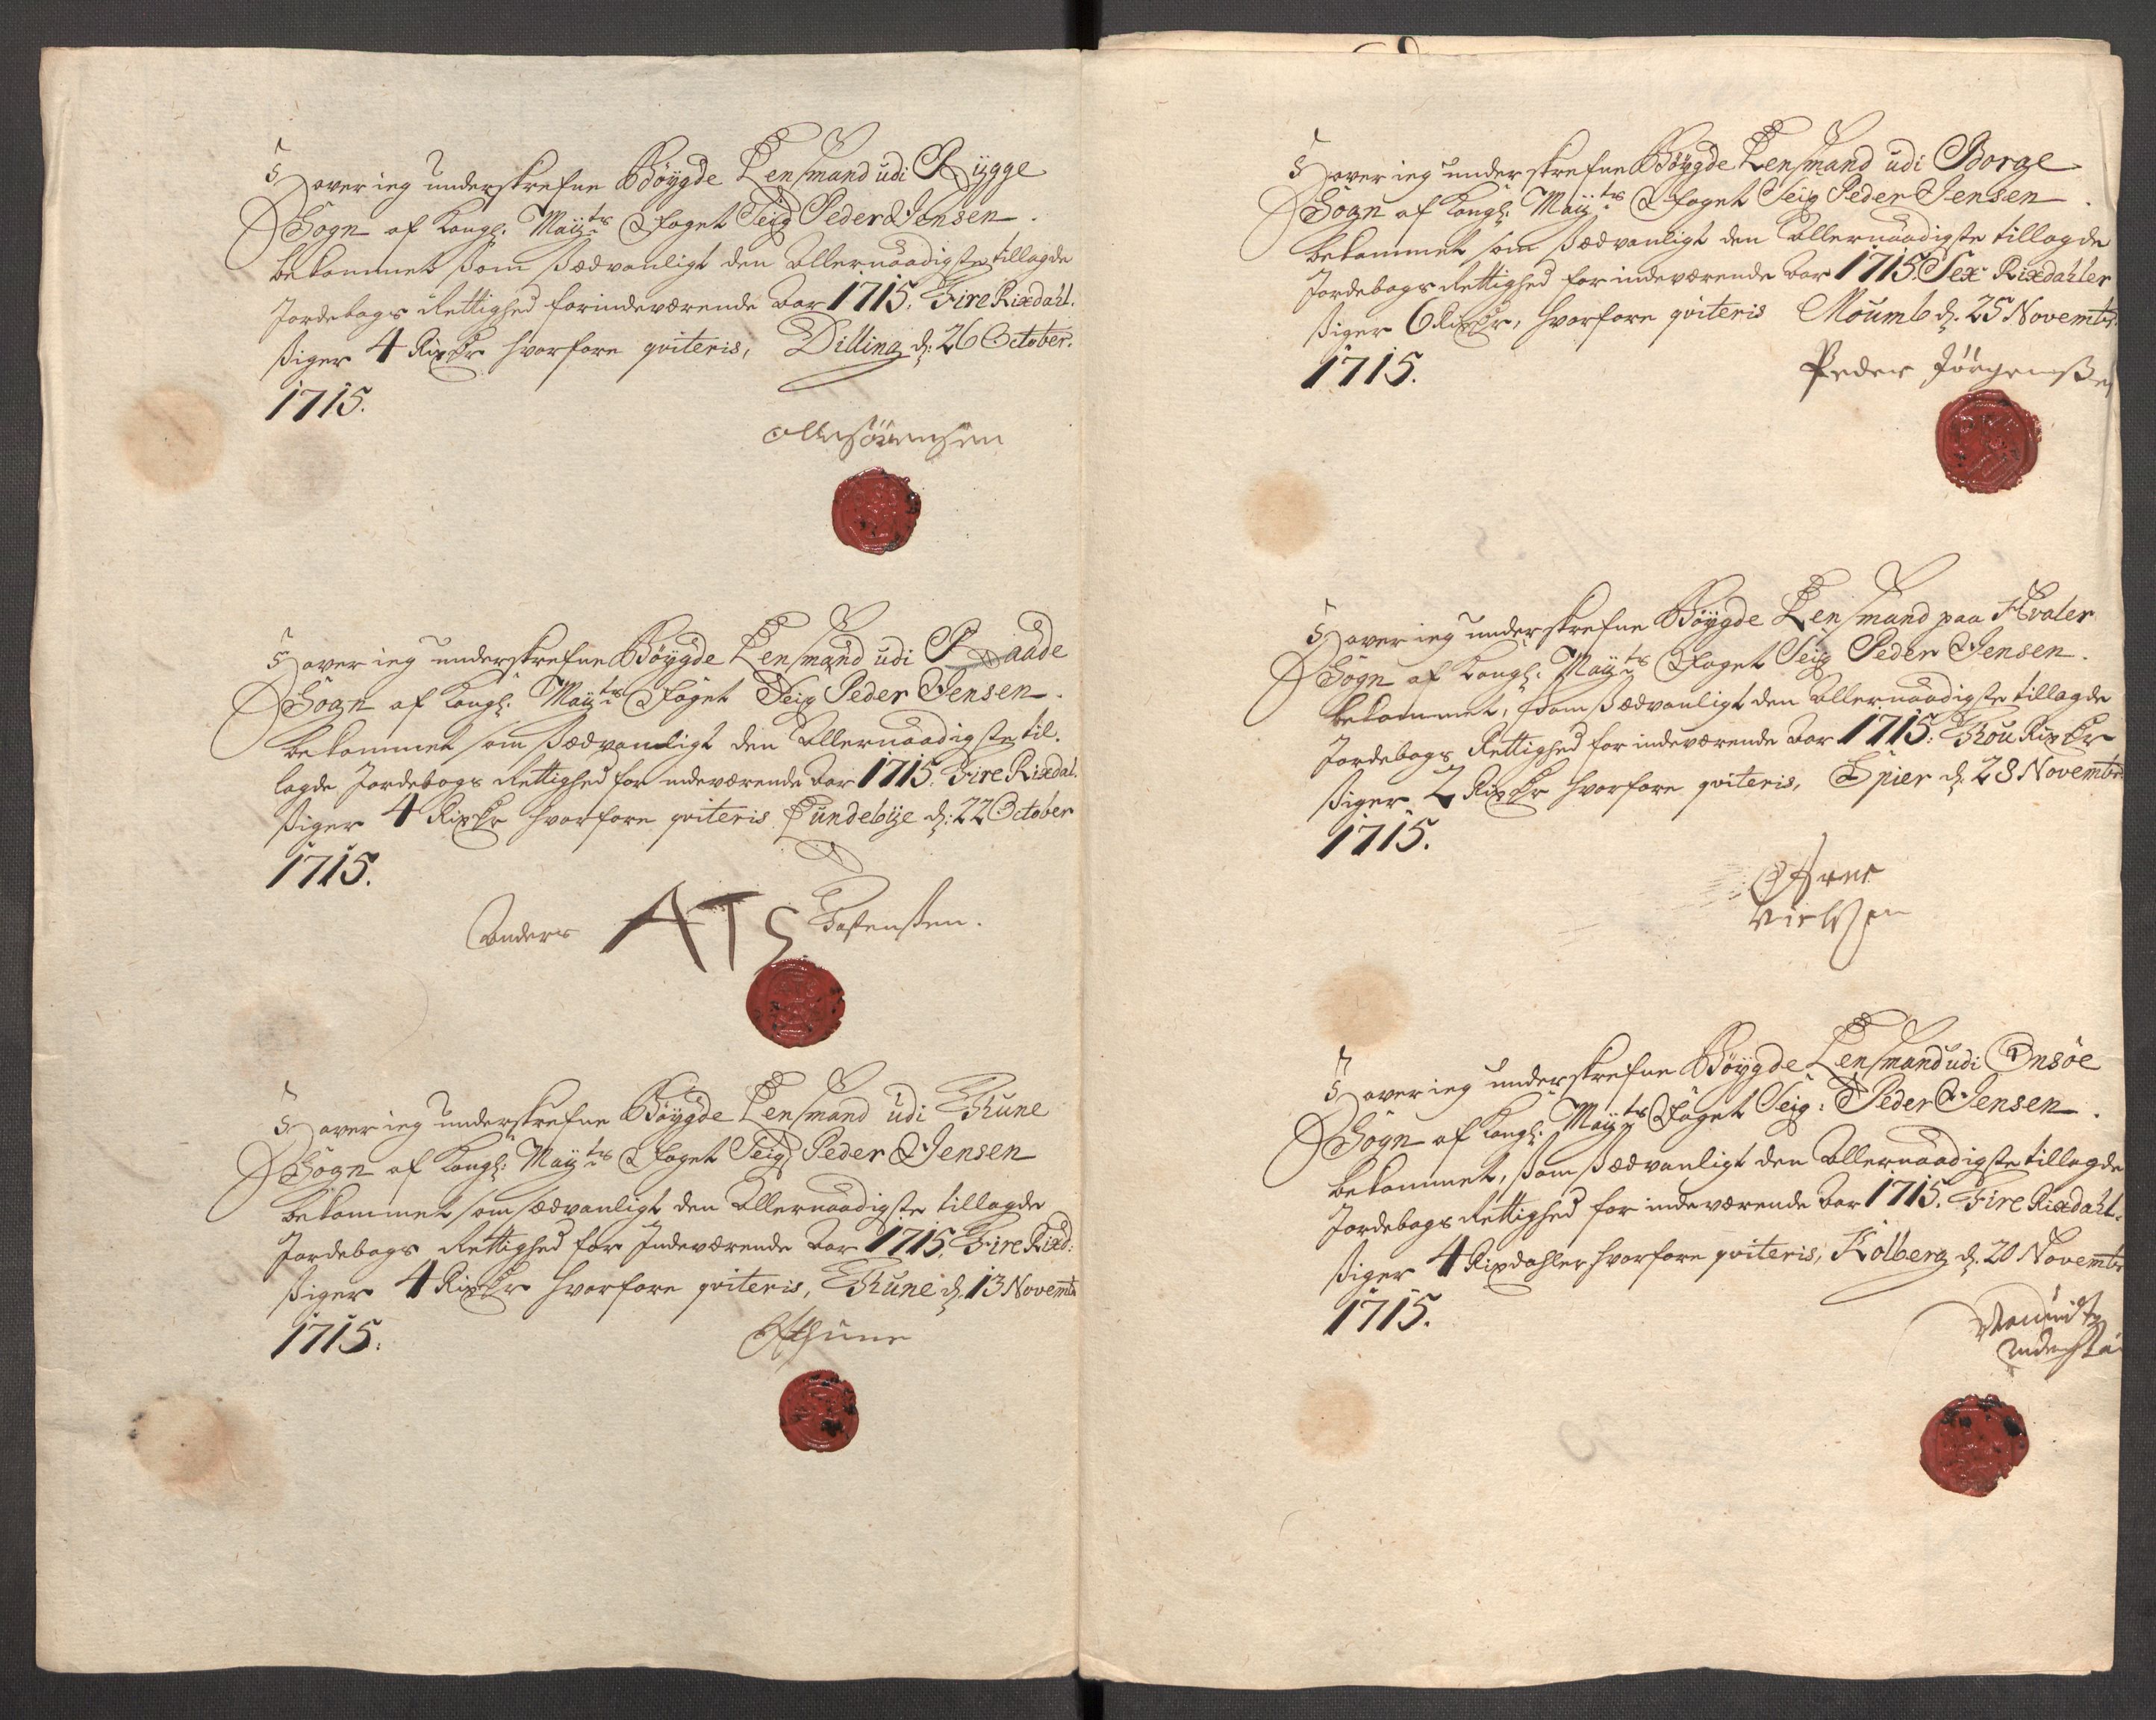 Hafver ieg underskrefne Böygde Lensmand udi Rygge
Sogn af Kongl: Mayts Foget Seig Peder Jensen.
bekommet som sædvanligt den Allernaadigste tillagde
Jordebogs Rettighed for indeværende Aar 1715. Fire Rixdahl.
siger 4 Rixdr hvorfore qviteris, Dilling d: 26 October.
1715.
Olle Sörensen
Hafver ieg underskrefne Böygde Lensmand udi Raade
Sogn af Kongl: Mayts Foget Seig Peder Jensen.
bekommet som sædvandligt den Allernaadigste til-
lagde Jordebogs Rettighed for indeværende Aar 1715. Fire Rixdal.
siger 4 Rixdr hvorfore qviteris Lundebÿe d: 22 October
1715.
Anders ATS
Hafver ieg underskrefne Böygde Lensmand udi Thune
Sogn af Kongl: Mayts Foget Seig Peder Jensen
bekommet som sædvanligt den Allernaadigste tillagde
Jordebogs Rettighed for Indeværende Aar 1715. Fire Rixd:
siger 4 Rixdr hvorfore qviteris, Thune d. 13 Novembr
1715.
Hafver ieg underskrefne Böygde Lensmand udi Borge
Sogn af Kongl: Mayts Foget Seig Peder Jensen.
bekommet som sædvanligt den Allernaadigste tillagde
Jordebogs Rettighed for indeværende Aar 1715. Sex Rixdahler
siger 6 Rixdr, hvorfore qviteris Moumb d. 25 Novembr.
1715.
Peder Jörgenssen
Hafver ieg underskrefne Böygde Lensmand paa Hvaler
Sogn af Kongl: Mayts Foget Seig Peder Jensen.
bekommet, som sædvanligt den Allernaadigste tillagde
Jordebogs Rettighed for indeværende Aar 1715. Thou Rixdr
siger 2 Rixdr hvorfore qviteris, Spier d. 28 Novembr
1715.
Nielsen
Hafver ieg underskrefne Böygde Lensmand udi Onsöe
Sogn af Kongl: Mayts Foget Seig: Peder Jensen.
bekommet, som sædvanligt den Allernaadigste tillagde
Jordebogs Rettighed for indeværende Aar 1715. Fire Rixdahl.
siger 4 Rixdahler hvorfore qviteris, Kolberg d. 20 Novembr
1715.